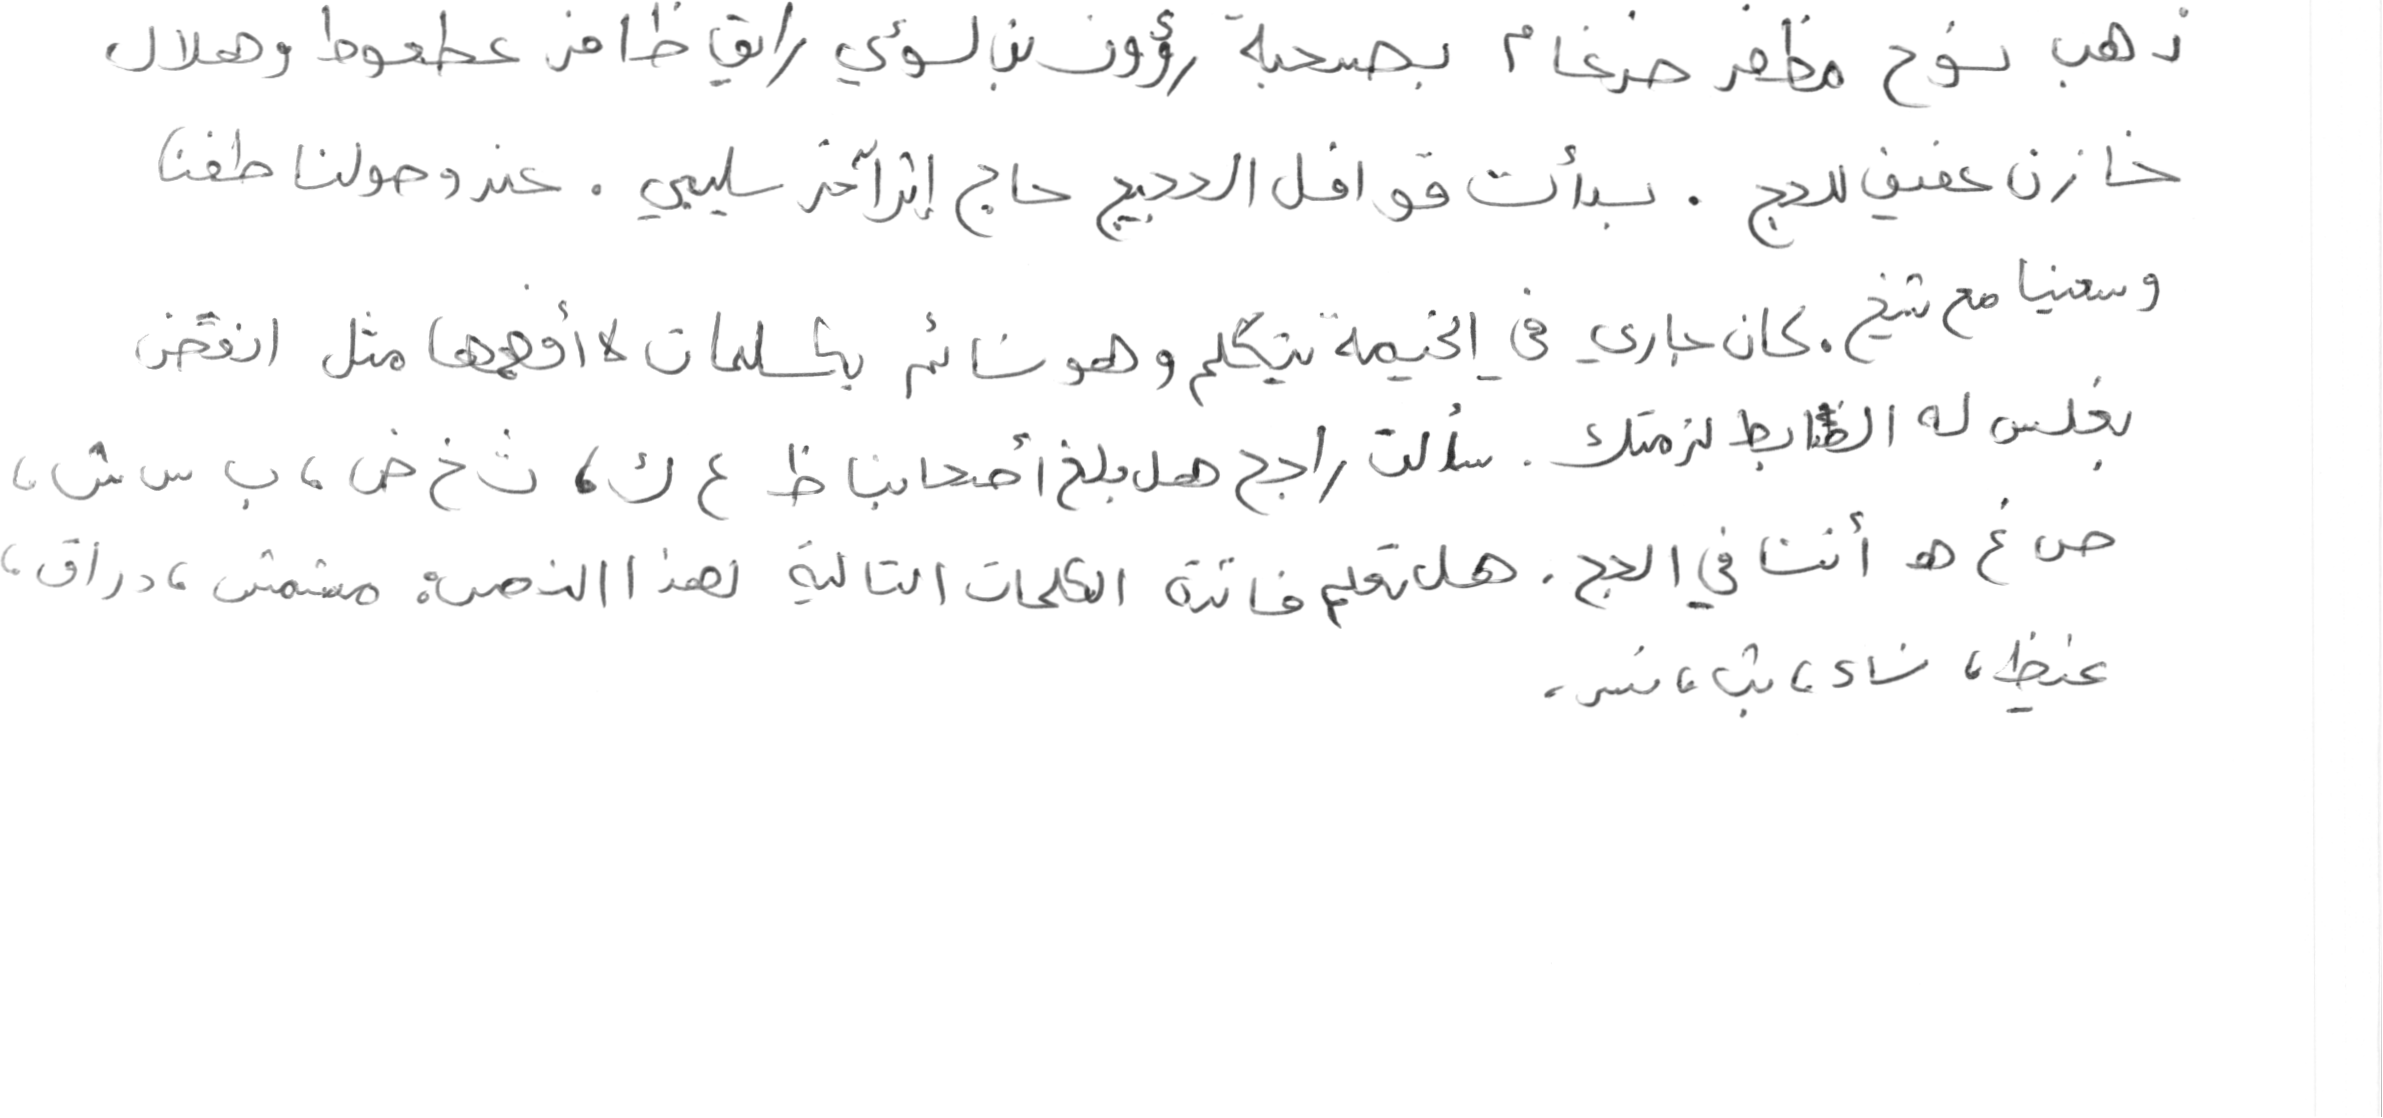 ذهب نوح مظفر ضرغام بصحبة رؤوف بن لؤي رايق ظافر عطعوط وهلال
خازن عفيف للحج . بدأت قوافل الحجيج حاج إثر آخر سليبي . عند وصولنا طفنا
وسعينا مع شيخ . كان جاري في الخيمة يتكلم وهو نائم بكلمات لا أفهمها مثل انقض
بغلس له الظابط لزمتك . سألت راجح هل بلغ أصحابنا ظ ع ك ، ث خ ض ، ب س ش ،
ص غ ه أننا في الحج . هل تعلم فائدة الكلمات التالية لهذا النص: مشمش ، دراق ،
غيظ ، ناء ، بث ، نسر .